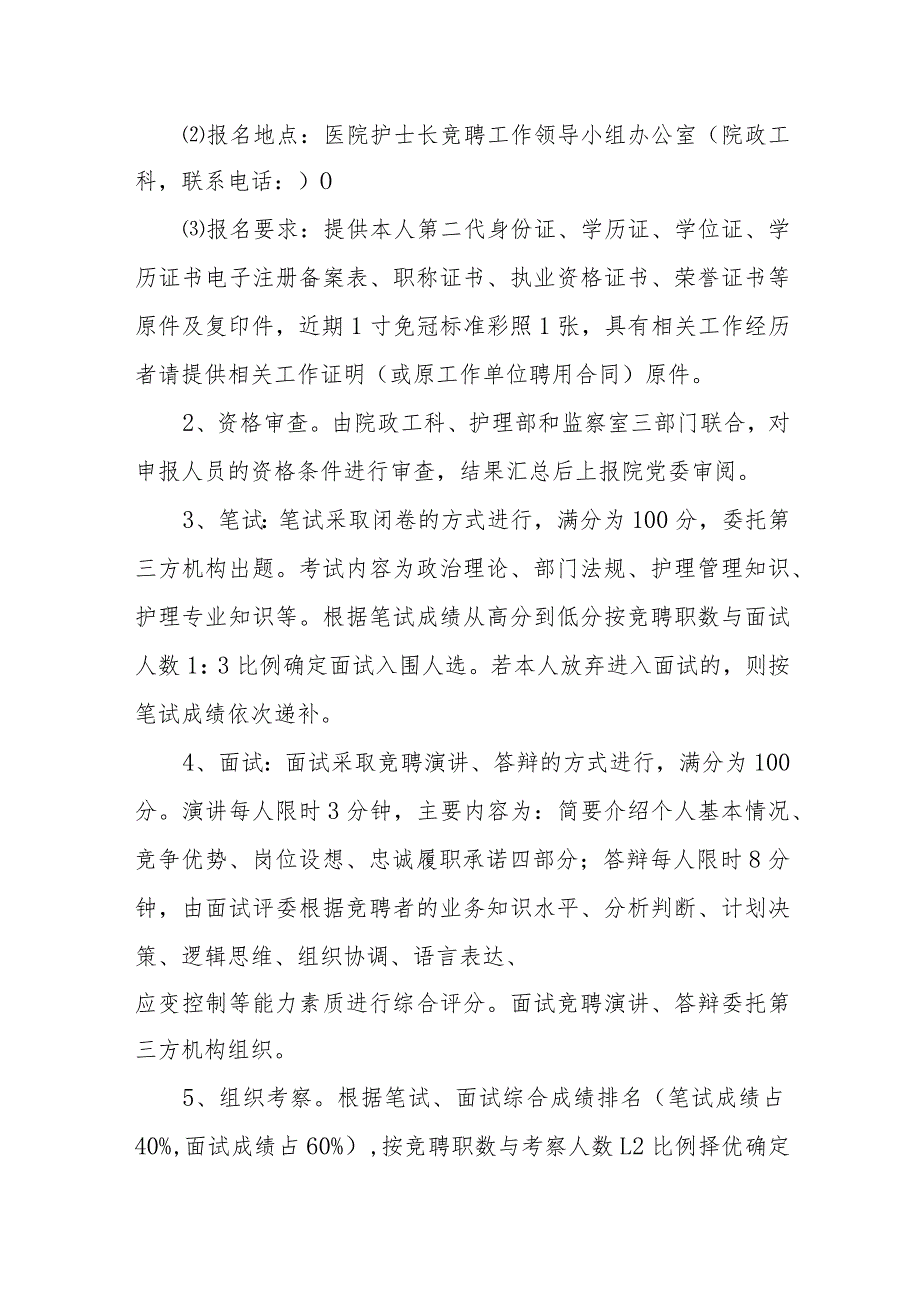 ⑵报名地点：医院护士长竞聘工作领导小组办公室（院政工
科，联系电话：）O
⑶报名要求：提供本人第二代身份证、学历证、学位证、学
历证书电子注册备案表、职称证书、执业资格证书、荣誉证书等
原件及复印件，近期 1 寸免冠标准彩照 1 张，具有相关工作经历
者请提供相关工作证明（或原工作单位聘用合同）原件。
2、资格审查。由院政工科、护理部和监察室三部门联合，对
申报人员的资格条件进行审查，结果汇总后上报院党委审阅。
3、笔试：笔试采取闭卷的方式进行，满分为 100 分，委托第
三方机构出题。考试内容为政治理论、部门法规、护理管理知识、
护理专业知识等。根据笔试成绩从高分到低分按竞聘职数与面试
人数 1：3 比例确定面试入围人选。若本人放弃进入面试的，则按
笔试成绩依次递补。
4、面试：面试采取竞聘演讲、答辩的方式进行，满分为 100
分。演讲每人限时 3 分钟，主要内容为：简要介绍个人基本情况、
竞争优势、岗位设想、忠诚履职承诺四部分；答辩每人限时 8 分
钟，由面试评委根据竞聘者的业务知识水平、分析判断、计划决
策、逻辑思维、组织协调、语言表达、
应变控制等能力素质进行综合评分。面试竞聘演讲、答辩委托第
三方机构组织。
5、组织考察。根据笔试、面试综合成绩排名（笔试成绩占
40%,面试成绩占 60%）,按竞聘职数与考察人数 L2 比例择优确定